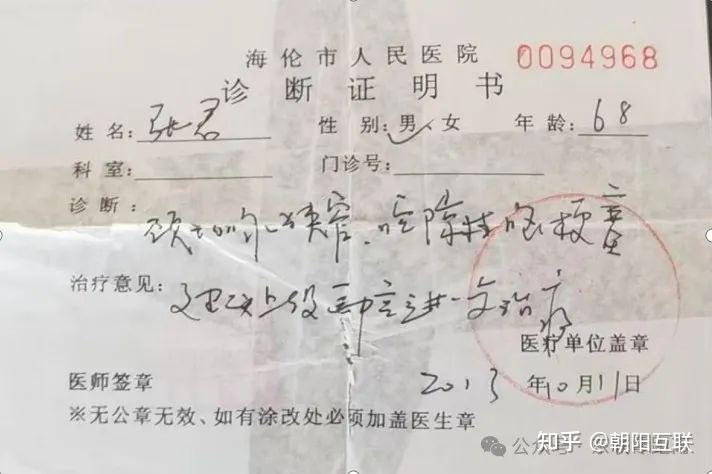 海伦市人民医院
0094968
诊断证明书
姓名:张君 性别:男、女 年龄:68
科室: 门诊号:
诊断:
颈动脉狭窄、腔隙性脑梗塞
治疗意见:
建议上级医院进一步治疗
医疗单位盖章
医师签章
2013年10月11日
※无公章无效、如有涂改处必须加盖医生章
知乎 @朝阳互联
公众号